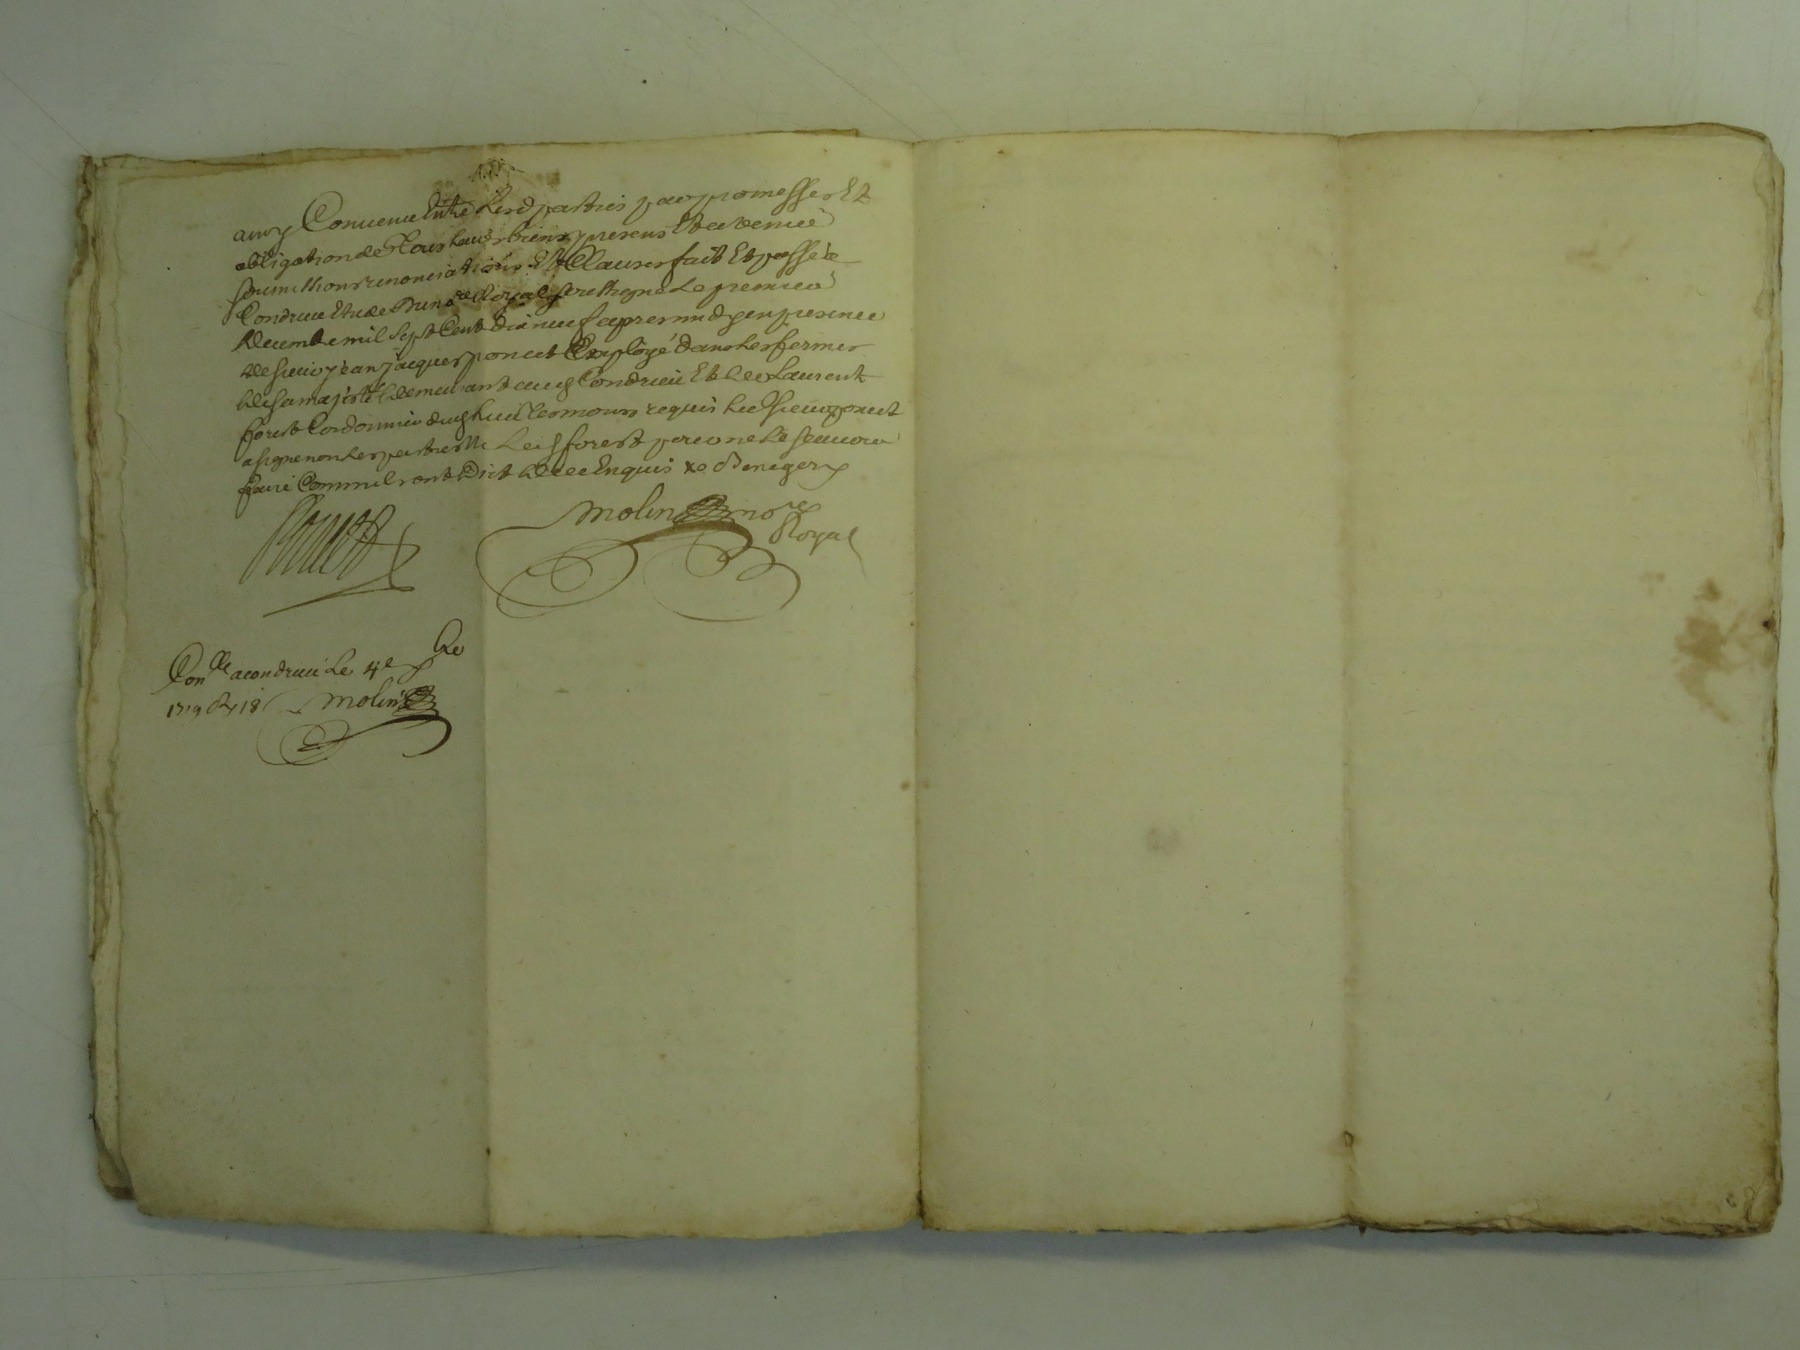 ainsy Convenu Entre Lesd parties par promesses Et
obligation de Tous Leurs biens presens Et a venir
soumissions renonciations Et Clauses fait Et passé a
Condrieu Etude Du no.re Royal soussigné Le premier
decembre mil sept Cent dix neuf apres midy en presence
de sieur jean jacques poncet Employé dans Les fermes
de sa majesté demeurant aud Condrieu Et de Laurent
forest Cordonnier dud Lieu temoins requis Led sieur poncet
a signé non Les parties ni Led forest pour ne Le scavoir
faire Comme ils ont dit de ce Enquis
poncet
molin no.re
Royal
Con.lle a condrieu Le 4e
1719 18 molin